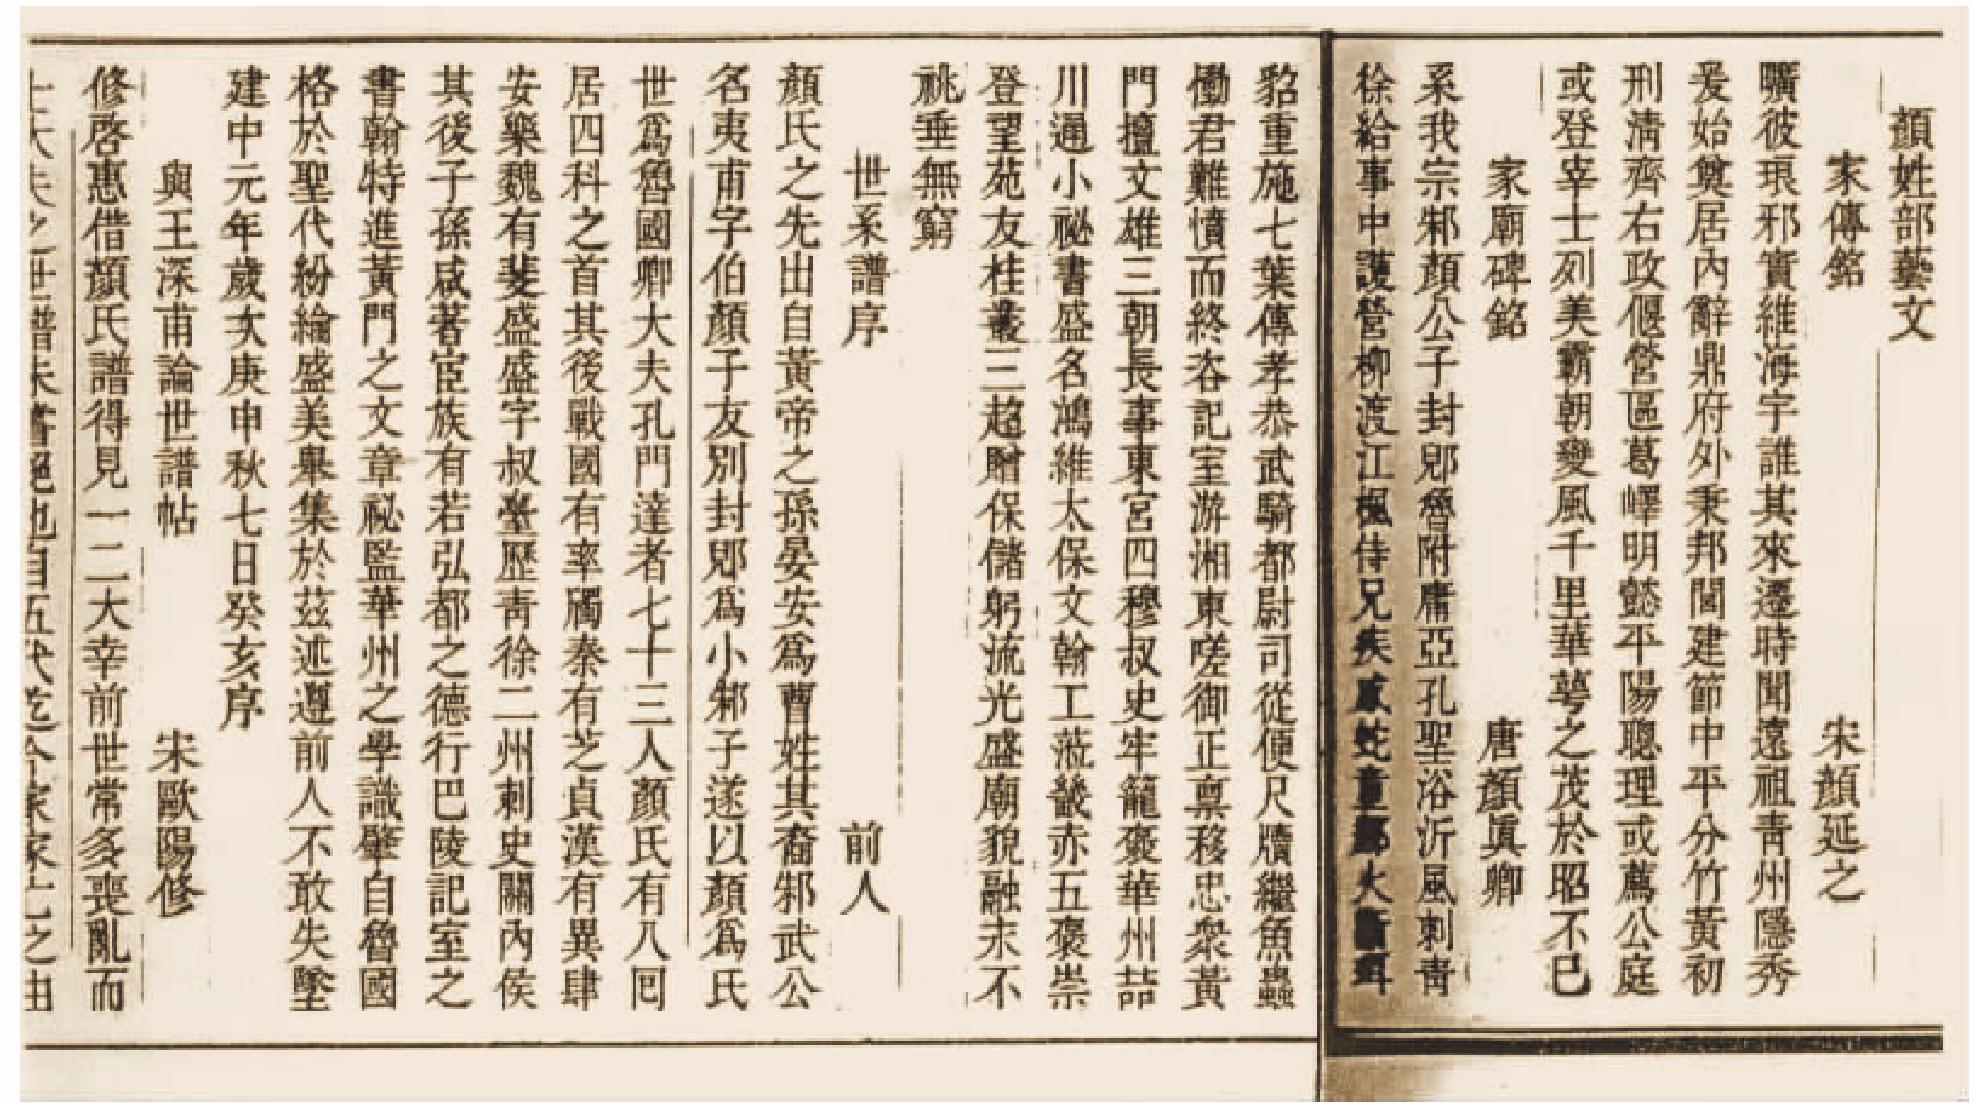 顏姓部藝文
家傳銘 宋顏延之
曠彼琅邪實維海宇誰其來遷時聞遠祖青州隱秀
爰始奠居內辭鼎府外秉邦閫建節中平分竹黃初
刑淸齊右政偃營區葛嶧明懿平陽聰理或薦公庭
或登宰士列美霸朝變風千里華萼之茂於昭不已
家廟碑銘 唐顏眞卿
系我宗邾顏公子封郳魯附庸亞孔聖浴沂風刺靑
徐給事中護營柳渡江楓侍兄疾蛇童
貂重施七葉傳孝恭武騎都尉司從便尺牘繼魚蟲
慟君難憤而終咨記室游湘東嗟御正稟移忠衆黃
門擅文雄三朝長事東宮四穆叔史牢籠褒華州喆
川通小祕書盛名鴻維太保文翰工蒞畿赤五褒崇
登望苑友桂叢三超贈保儲躬流光盛廟貌融末不
祧垂無窮
世系譜序 前人
顏氏之先出自黃帝之孫晏安爲曹姓其裔邾武公
名夷甫字伯顏子友別封郳爲小邾子遂以顏爲氏
世爲魯國卿大夫孔門達者七十三人顏氏有八回
居四科之首其後戰國有率斶秦有芝貞漢有異肆
安樂魏有斐盛盛字叔臺歷靑徐二州刺史關內侯
其後子孫咸著宦族有若弘都之德行巴陵記室之
書翰特進黃門之文章祕監華州之學識肇自魯國
格於聖代紛綸盛美畢集於茲述遵前人不敢失墜
建中元年歲次庚申秋七日癸亥序
與王深甫論世譜帖 宋歐陽修
修啓惠借顏氏譜得見一二大幸前世常多喪亂而
士大夫之世譜未嘗絕也自五代迄今家家亡之由